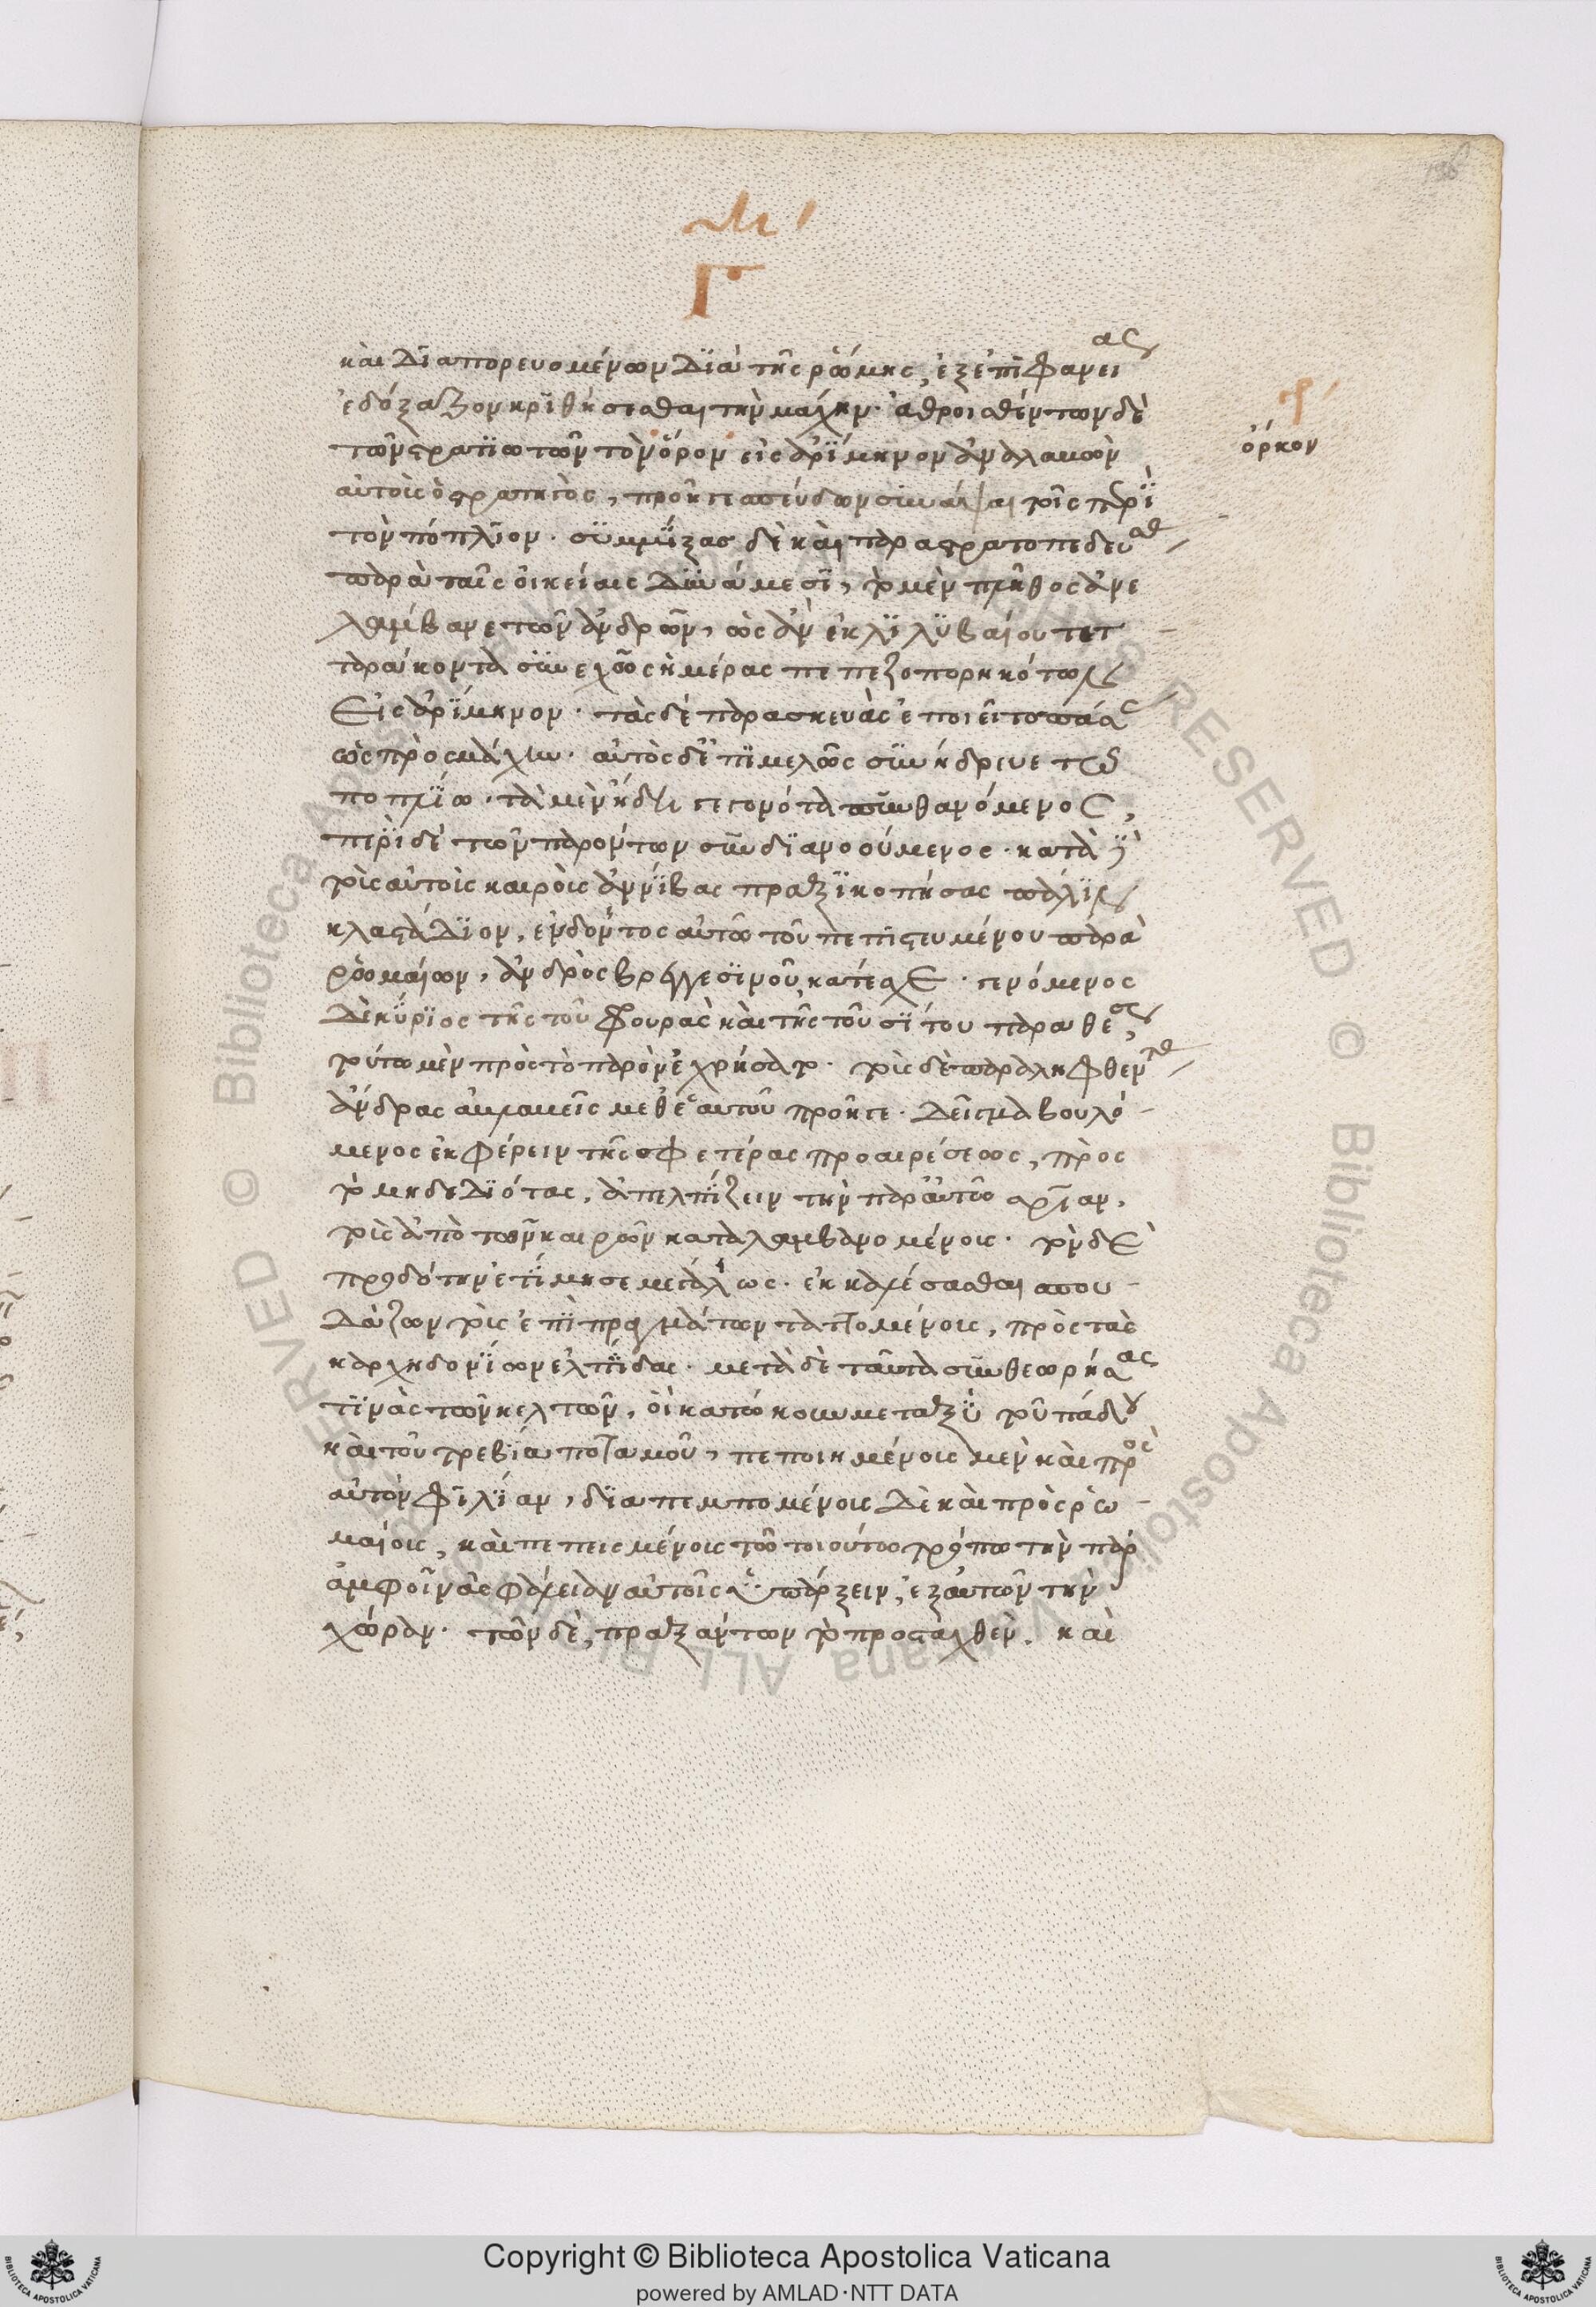 Γ
καὶ διαπορευομένων διὰ τῆς ῥώμης, ἐξ ἐπιφανείας
ἐδόξαζον κριθήσεσθαι τὴν μάχην. ἀθροισθέντων δὲ
τῶν στρατιωτῶν τὸν ὅρον εἰς ἀρίμηνον ἀναλαμὼν
ὅρκον
αὐτοὺς ὁ στρατηγὸς, προῆγε σπεύδων συνάψαι τοῖς περὶ
τὸν πόπλιον. συμμίξας δὲ καὶ παραστρατοπεδεύσας
παρὰ ταῖς οἰκείαις δυνάμεσι, τὸ μὲν πλῆθος ἀνε
λάμβανε τῶν ἀνδρῶν, ὡς ἂν ἐκ λιλυβαίου τετ-
ταράκοντα συνεχῶς ἡμέρας πεπεζοπορηκότων
εἰς ἀρίμηνον. τὰς δὲ παρασκευὰς ἐποιεῖτο πάσας
ὡς πρὸς μάχην. αὐτὸς δ' ἐπιμελῶς συνήδρευε τῶ
ποπλίω. τὰ μὲν ἤδη γεγονότα πυνθανόμενος,
περὶ δὲ τῶν παρόντων συνδιανοούμενος. κατὰ δὲ
τοὺς αὐτοὺς καιροὺς ἀννίβας πραξικοπήσας πόλιν
κλαστίδιον, ἐνδόντος αὐτῶ τοῦ πεπιστευμένου παρὰ
ῥωμαίων, ἀνδρὸς βρεντεσίνου, κατέσχε. γενόμενος
δὲ κύριος τῆς τοῦ φρουρᾶς καὶ τῆς τοῦ σίτου παραθέσεως,
τούτω μὲν πρὸς τὸ παρὸν ἐχρήσατο. τοὺς δὲ παραληφθέντας
ἄνδρας ἀβλαβεῖς μεθ' ἑαυτοῦ προῆγε. δεῖγμα βουλό-
μενος ἐκφέρειν τῆς σφετέρας προαιρέσεως, πρὸς
τὸ μὴ δεδιότας, ἀπελπίζειν τὴν παρ' αὐτοῦ σωτηρίαν,
τοὺς ὑπὸ τῶν καιρῶν καταλαμβανομένους. τὸν δὲ
προδότην ἐτίμησε μεγάλως. ἐκκαλέσασθαι σπου-
δάζων τοὺς ἐπὶ πραγμάτων ταττομένους, πρὸς τὰς
καρχηδονίων ἐλπίδας. μετὰ δὲ ταῦτα συνθεωρήσας
τινὰς τῶν κελτῶν, οἳ κατώκουν μεταξὺ τοῦ πάδου
καὶ τοῦ τρεβία ποταμοῦ, πεποιημένους μὲν καὶ πρὸς
αὐτὸν φιλίαν, διαπεμπομένους δὲ καὶ πρὸς ῥω-
μαίους, καὶ πεπεισμένους τῶ τοιούτω τρόπω τὴν παρ'
ἀμφοῖν ἀσφάλειαν αὐτοῖς ὑπάρξειν, ἐξ αὐτῶν τὴν
χώραν. τῶν δὲ, πραξάντων τὸ προσταχθὲν. καὶ
Copyright © Biblioteca Apostolica Vaticana
powered by AMLAD·NTT DATA